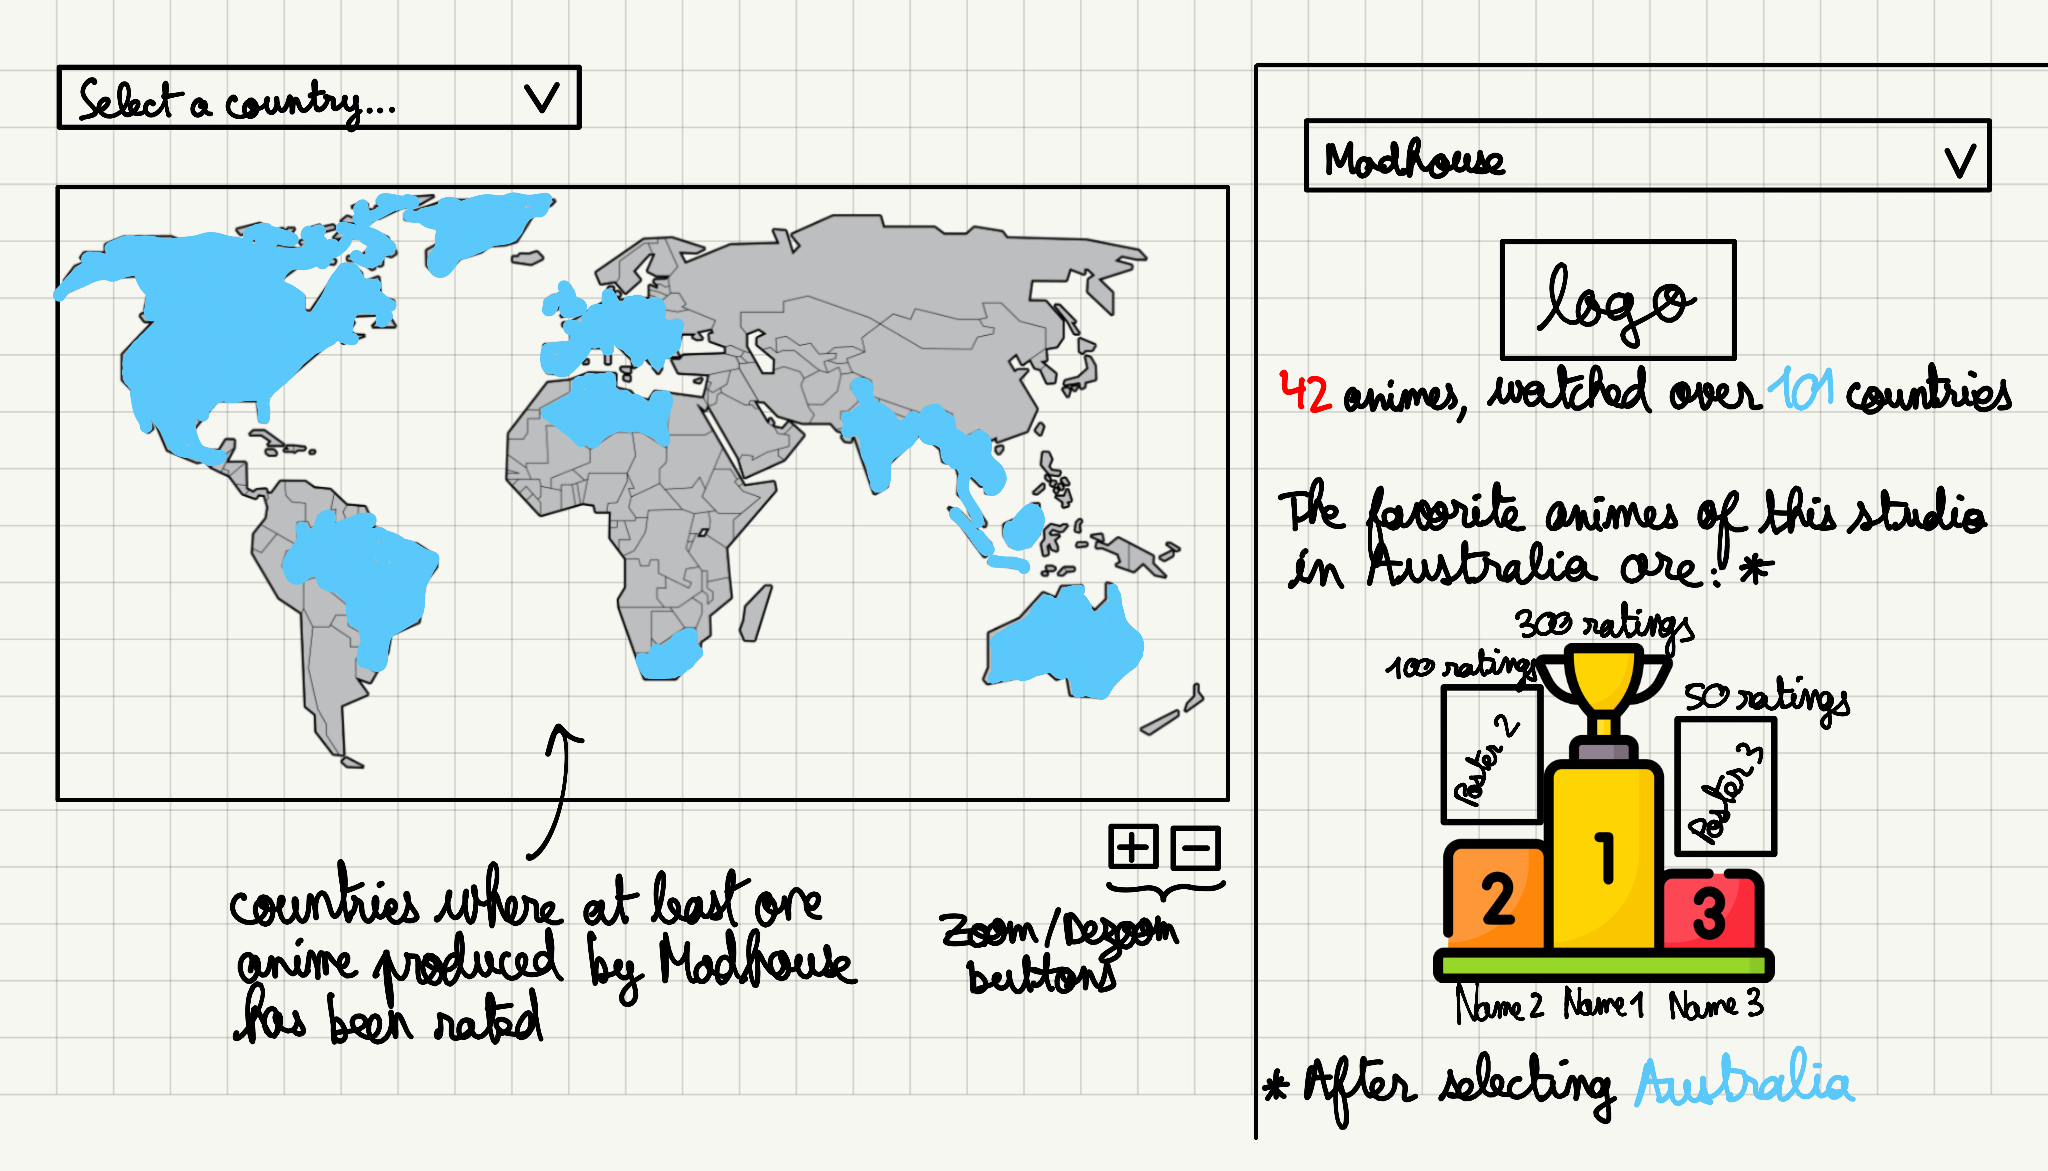 Select a country...
countries where at least one
anime produced by Madhouse
has been rated
+ −
Zoom/Dezoom
buttons
Madhouse
logo
42 animes, watched over 101 countries
The favorite animes of this studio
in Australia are: *
300 ratings
100 ratings
50 ratings
Poster 2
Poster 3
1
2
3
Name 2 Name 1 Name 3
* After selecting Australia